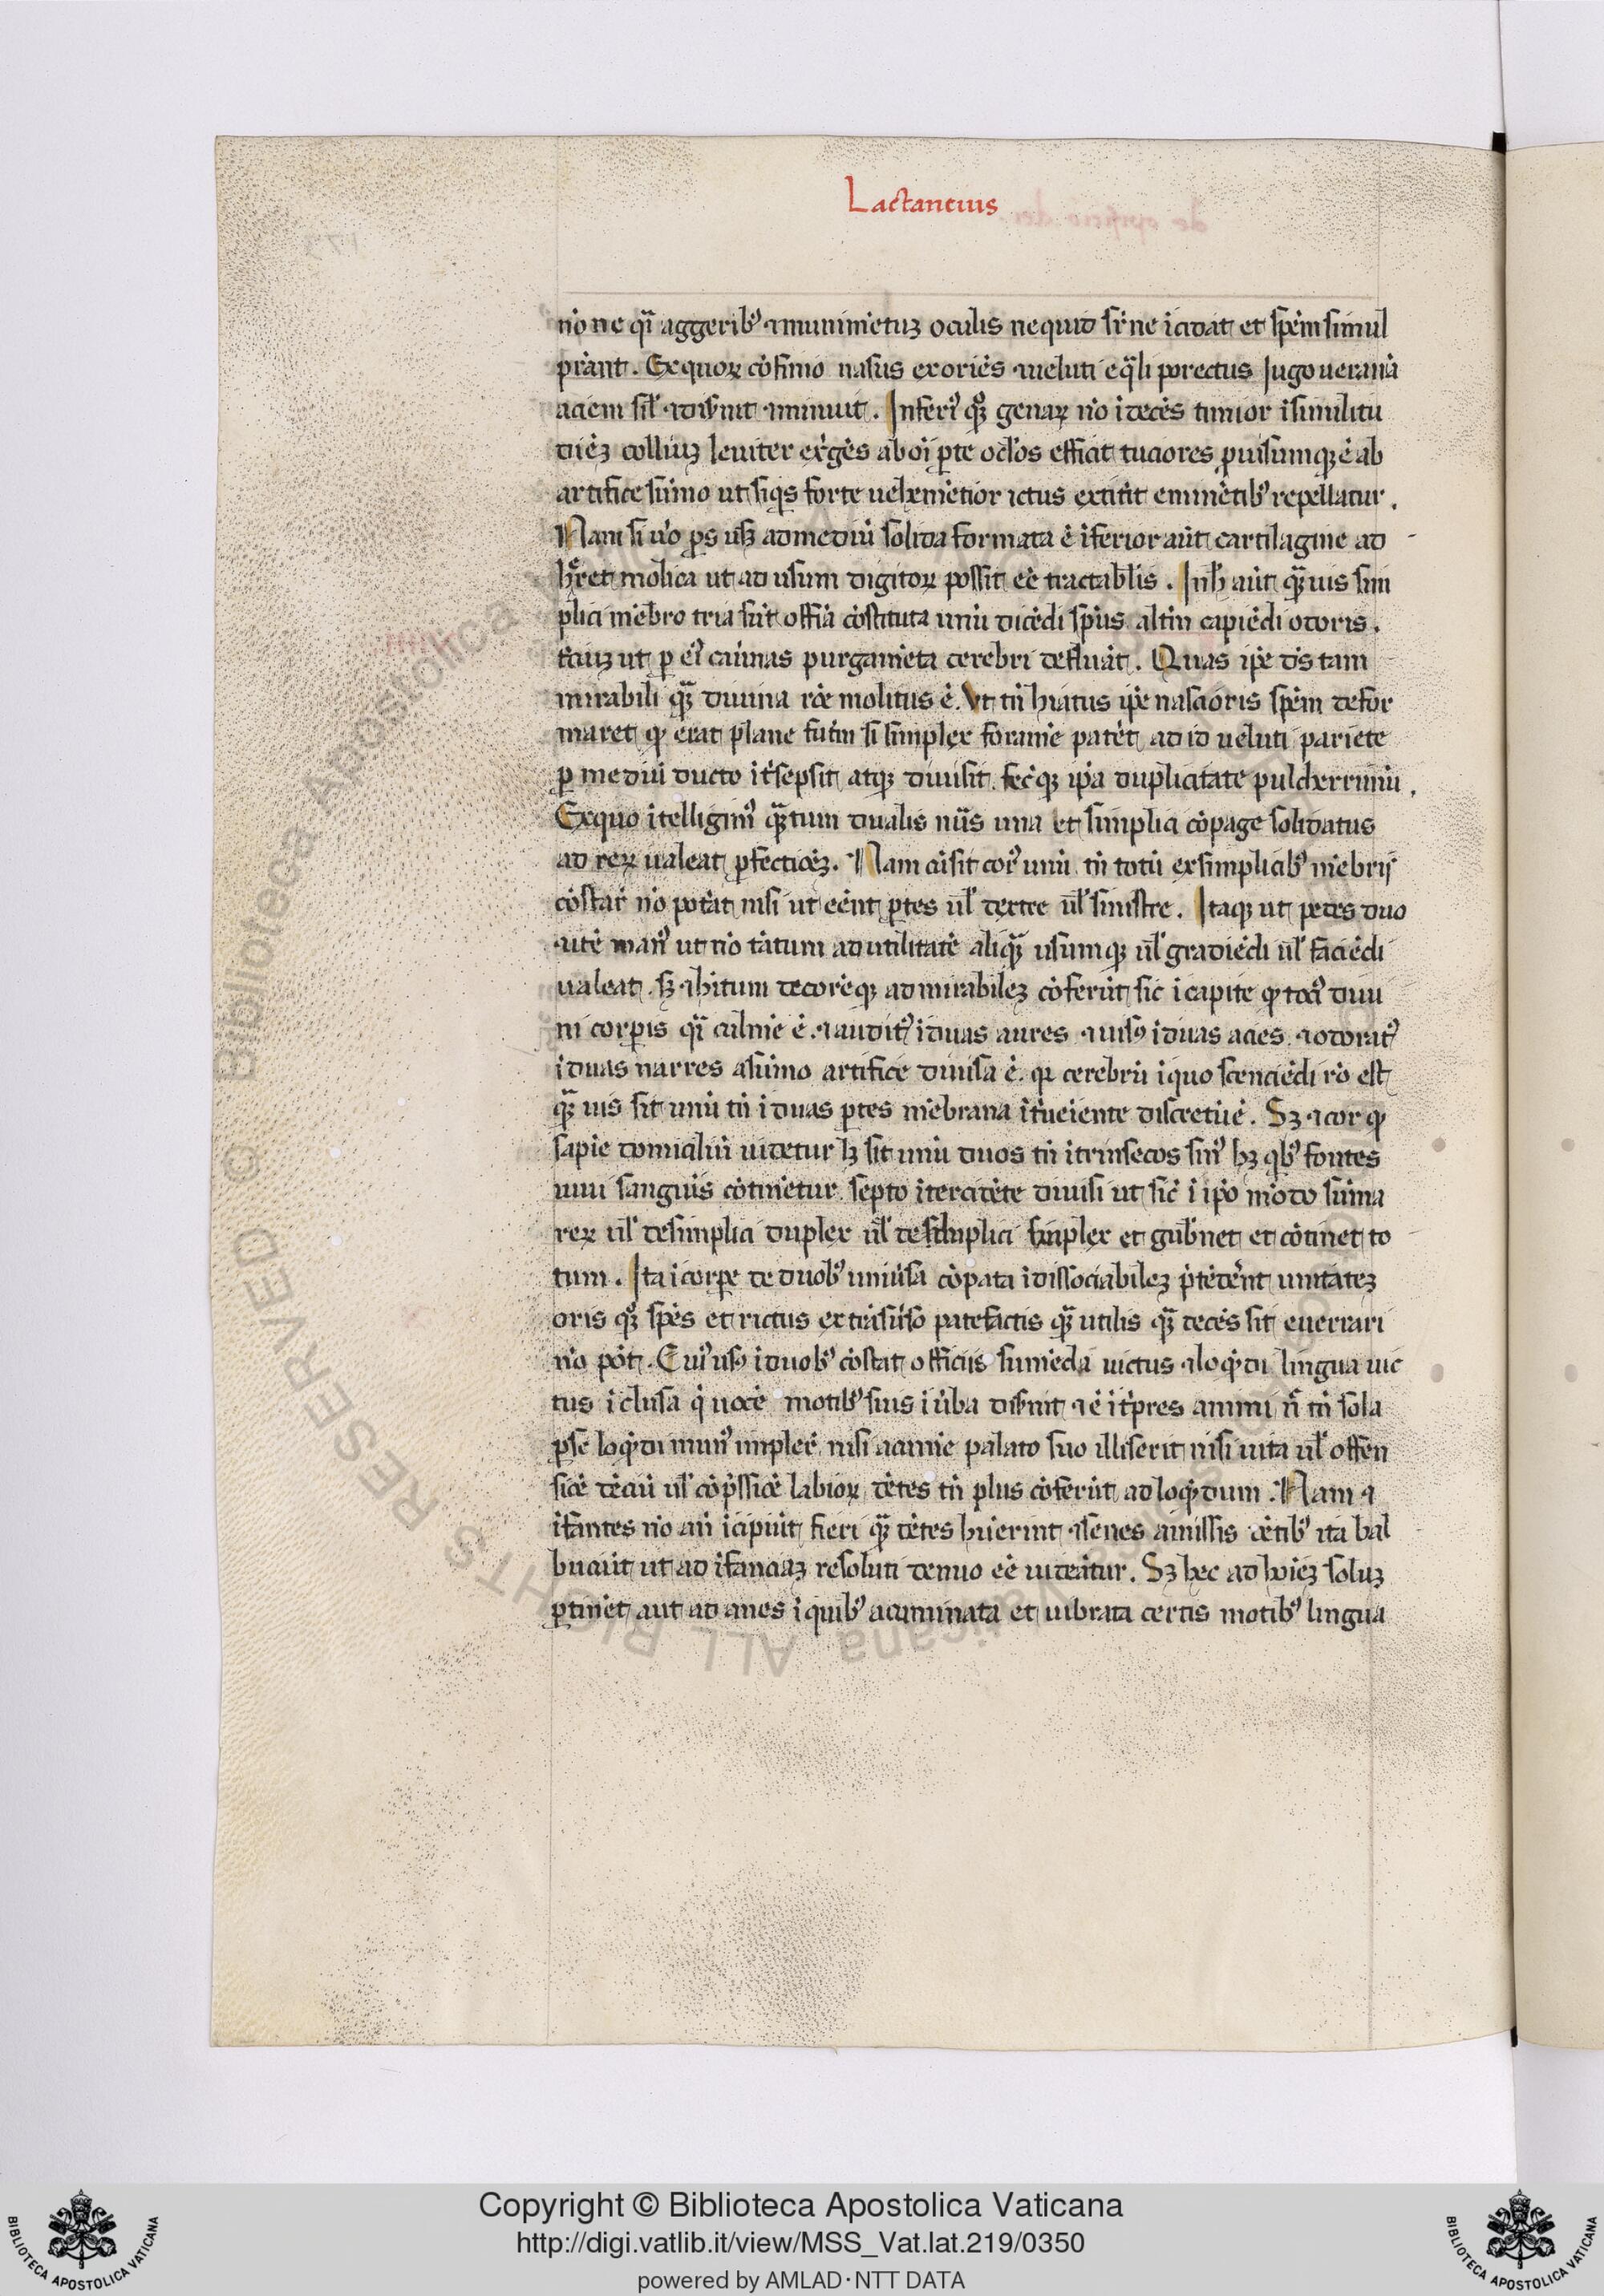 Lactantius
no ne qͥ aggeribꝰ ⁊ munimētuꝫ oculis nequid sꝑne ĩcidat et spēm simul
prānt. Ex quoꝝ cōfinio nasus exoriēs ⁊ ueluti eq̄li porectus Jugo ueranā
aciem sil̓ ⁊ discīnit ⁊ munit. Inferiꝰ qꝫ genaꝝ nō ĩdecēs tumor ĩ similitu
diēꝫ colliuꝫ leuiter exꝯgēs ab oĩ ꝑte oclōs efficit tuciores ꝓuisumqꝫ ē ab
artifice sūmo ut siqͥs forte uehemētior ictus extitīt eminētibꝰ repellatur.
Nam si uͦo ꝑs usqꝫ ad mediū solida formata ē ĩferior aūt cartilagine ad
hꝫret mollica ut ad usum digitoꝝ possit eē tractabl̓is. In h̄ aūt qͣ̄uis sim
plici mēbro tria sūt offīa cōstituta unū dicēdi sp̄us altm̄ capiēdi odoris.
tͨiuꝫ ut ꝑ eiꝰ cauīnas purgamēta cerebri defluāt. Quas ip̄e d̄s tam
mirabili qͣ̄ diuina rōe molitus ē. Vt tn̄ hiatus ip̄e nasci oris spēm defor
maret qͩ erat plane futm̄ si simplex foramē patēt ad id ueluti pariete
ꝑ mediū ducto ĩt̓sepsit atqꝫ diuisit. fecͭqꝫ ip̄a duplicitate pulcherrimū.
Ex quo ĩtelligimꝰ qͣ̄tum dualis nūs una et simplici cōpage solidatus
ad reꝝ ualeat ꝑfectiōeꝫ. Nam cū sit corꝰ unū tn̄ totū ex simplicibꝰ mēbris
cōstar̄ nō potāt nisi ut eēnt ꝑtes ul̓ dextre ul̓ sinistre. Itaqꝫ ut pedes duo
⁊ itē manꝰ ut nō tātum ad utilitatē aliqͣ̄ usumqꝫ ul̓ gradiēdi ul̓ faciēdi
ualeāt sꝫ ⁊ hitum decorēqꝫ admirabileꝫ cōferūt sic ĩ capite qͩ totiꝰ diui
ni corꝑis qͣ̄ culmē ē. ⁊ auditꝰ ĩ duas aures ⁊ uisꝰ ĩ duas acies ⁊ odoratꝰ
ĩ duas narres a sūmo artifice diuisa ē. qꝛ cerebrū ĩ quo scenciēdi rō est
qͣ̄uis sit unū tn̄ ĩ duas ꝑtes mēbrana ĩt̓ueiente discretū ē. Sꝫ ⁊ cor qͩ
sapīe domicilīū uidetur lꝫ sit unū duos tn̄ ĩtrinsecos sinꝰ hꝫ qͥbꝰ fontes
uiui sanguīs cōtinētur septo ĩtercidēte diuisi ut sic̄ ĩ ip̄o mōdo sūma
reꝝ ul̓ de simplici duplex ul̓ de simplici simplex et gub̓net et cōtinet to
tum. Ita ĩ corꝑe de duobꝰ uniūsa cōpata ĩdissociabileꝫ p̄tēdēr̄nt unitateꝫ
oris qꝫ spēs et rictus ex trāsūso patefactis qͣ̄ utilis qͣ̄ decēs sit enerrari
nō pōt. Cuiꝰ usꝰ ĩ duobꝰ cōstat officiis sumēdi uictus ⁊ loqͥdi lingua uic
tus ĩclusa qͥ uocē motibꝰ suis ĩ ūba disīnit ⁊ ē ĩt̓pres animi n̄ tn̄ sola
ꝑ se loqͥdi munꝰ implēr̄ nisi acumīe palato suo illiserit nisi iuta ul̓ offen
siōē dēciū ul̓ cōp̄ssiōē labioꝝ dētes tn̄ plus cōferūt ad loqͥdum. Nam ⁊
ĩfantes nō an̄ ĩcipiūt fieri qͣ̄ dētes huerint ⁊ senes amissis dētibꝰ ita bal
buciūt ut ad ĩfanciaꝫ resoluti denuo eē uideātur. Sꝫ hec ad hoīeꝫ soluꝫ
ꝑtinēt aut ad aues ĩ quibꝰ acuminata et uibrata certis motibꝰ lingua
© Biblioteca Apostolica Vaticana ALL RIGHTS RESERVED
Copyright © Biblioteca Apostolica Vaticana
http://digi.vatlib.it/view/MSS_Vat.lat.219/0350
powered by AMLAD·NTT DATA
BIBLIOTECA APOSTOLICA VATICANA
BIBLIOTECA APOSTOLICA VATICANA